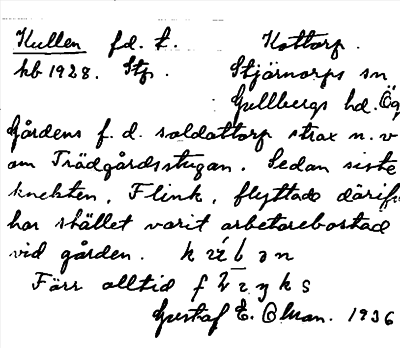 Kullen fd. t. Kottorp.
kb 1928. Stp. Stjärnorps sn
Gullbergs hd. Ög
Gårdens f. d. soldattorp strax n. v
om Trädgårdsstugan. Sedan siste
knekten, Flink, flyttade därifr
har stället varit arbetarebostad
vid gården.
Förr alltid
Gustaf E. Ohman. 1936